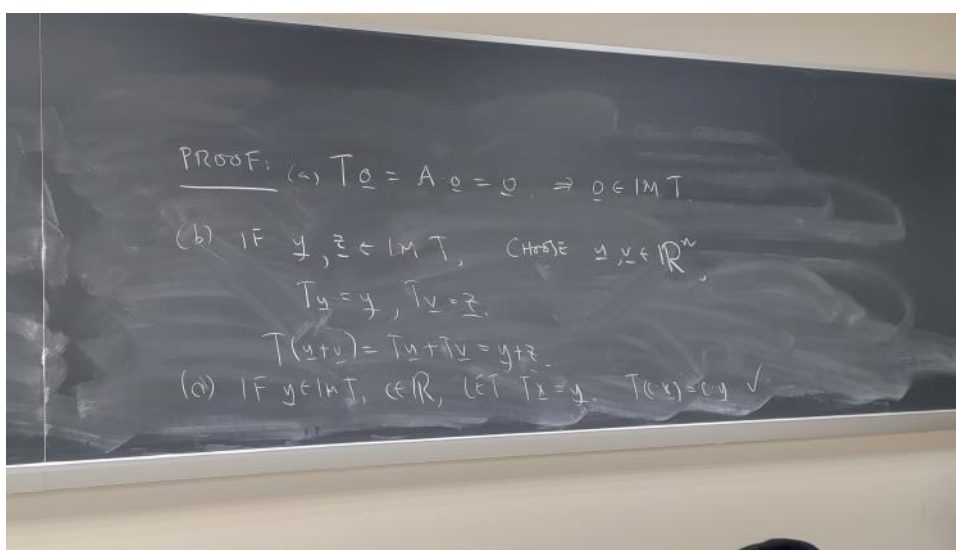 PROOF: (a) T0 = A0 = 0. ⇒ 0 ∈ IM T.
(b) IF y, z ∈ IM T, CHOOSE u, v ∈ ℝⁿ,
Tu = y, Tv = z.
T(u+v) = Tu + Tv = y+z.
(c) IF y ∈ IM T, c ∈ ℝ, LET Tx = y. T(c·x) = c·y ✓